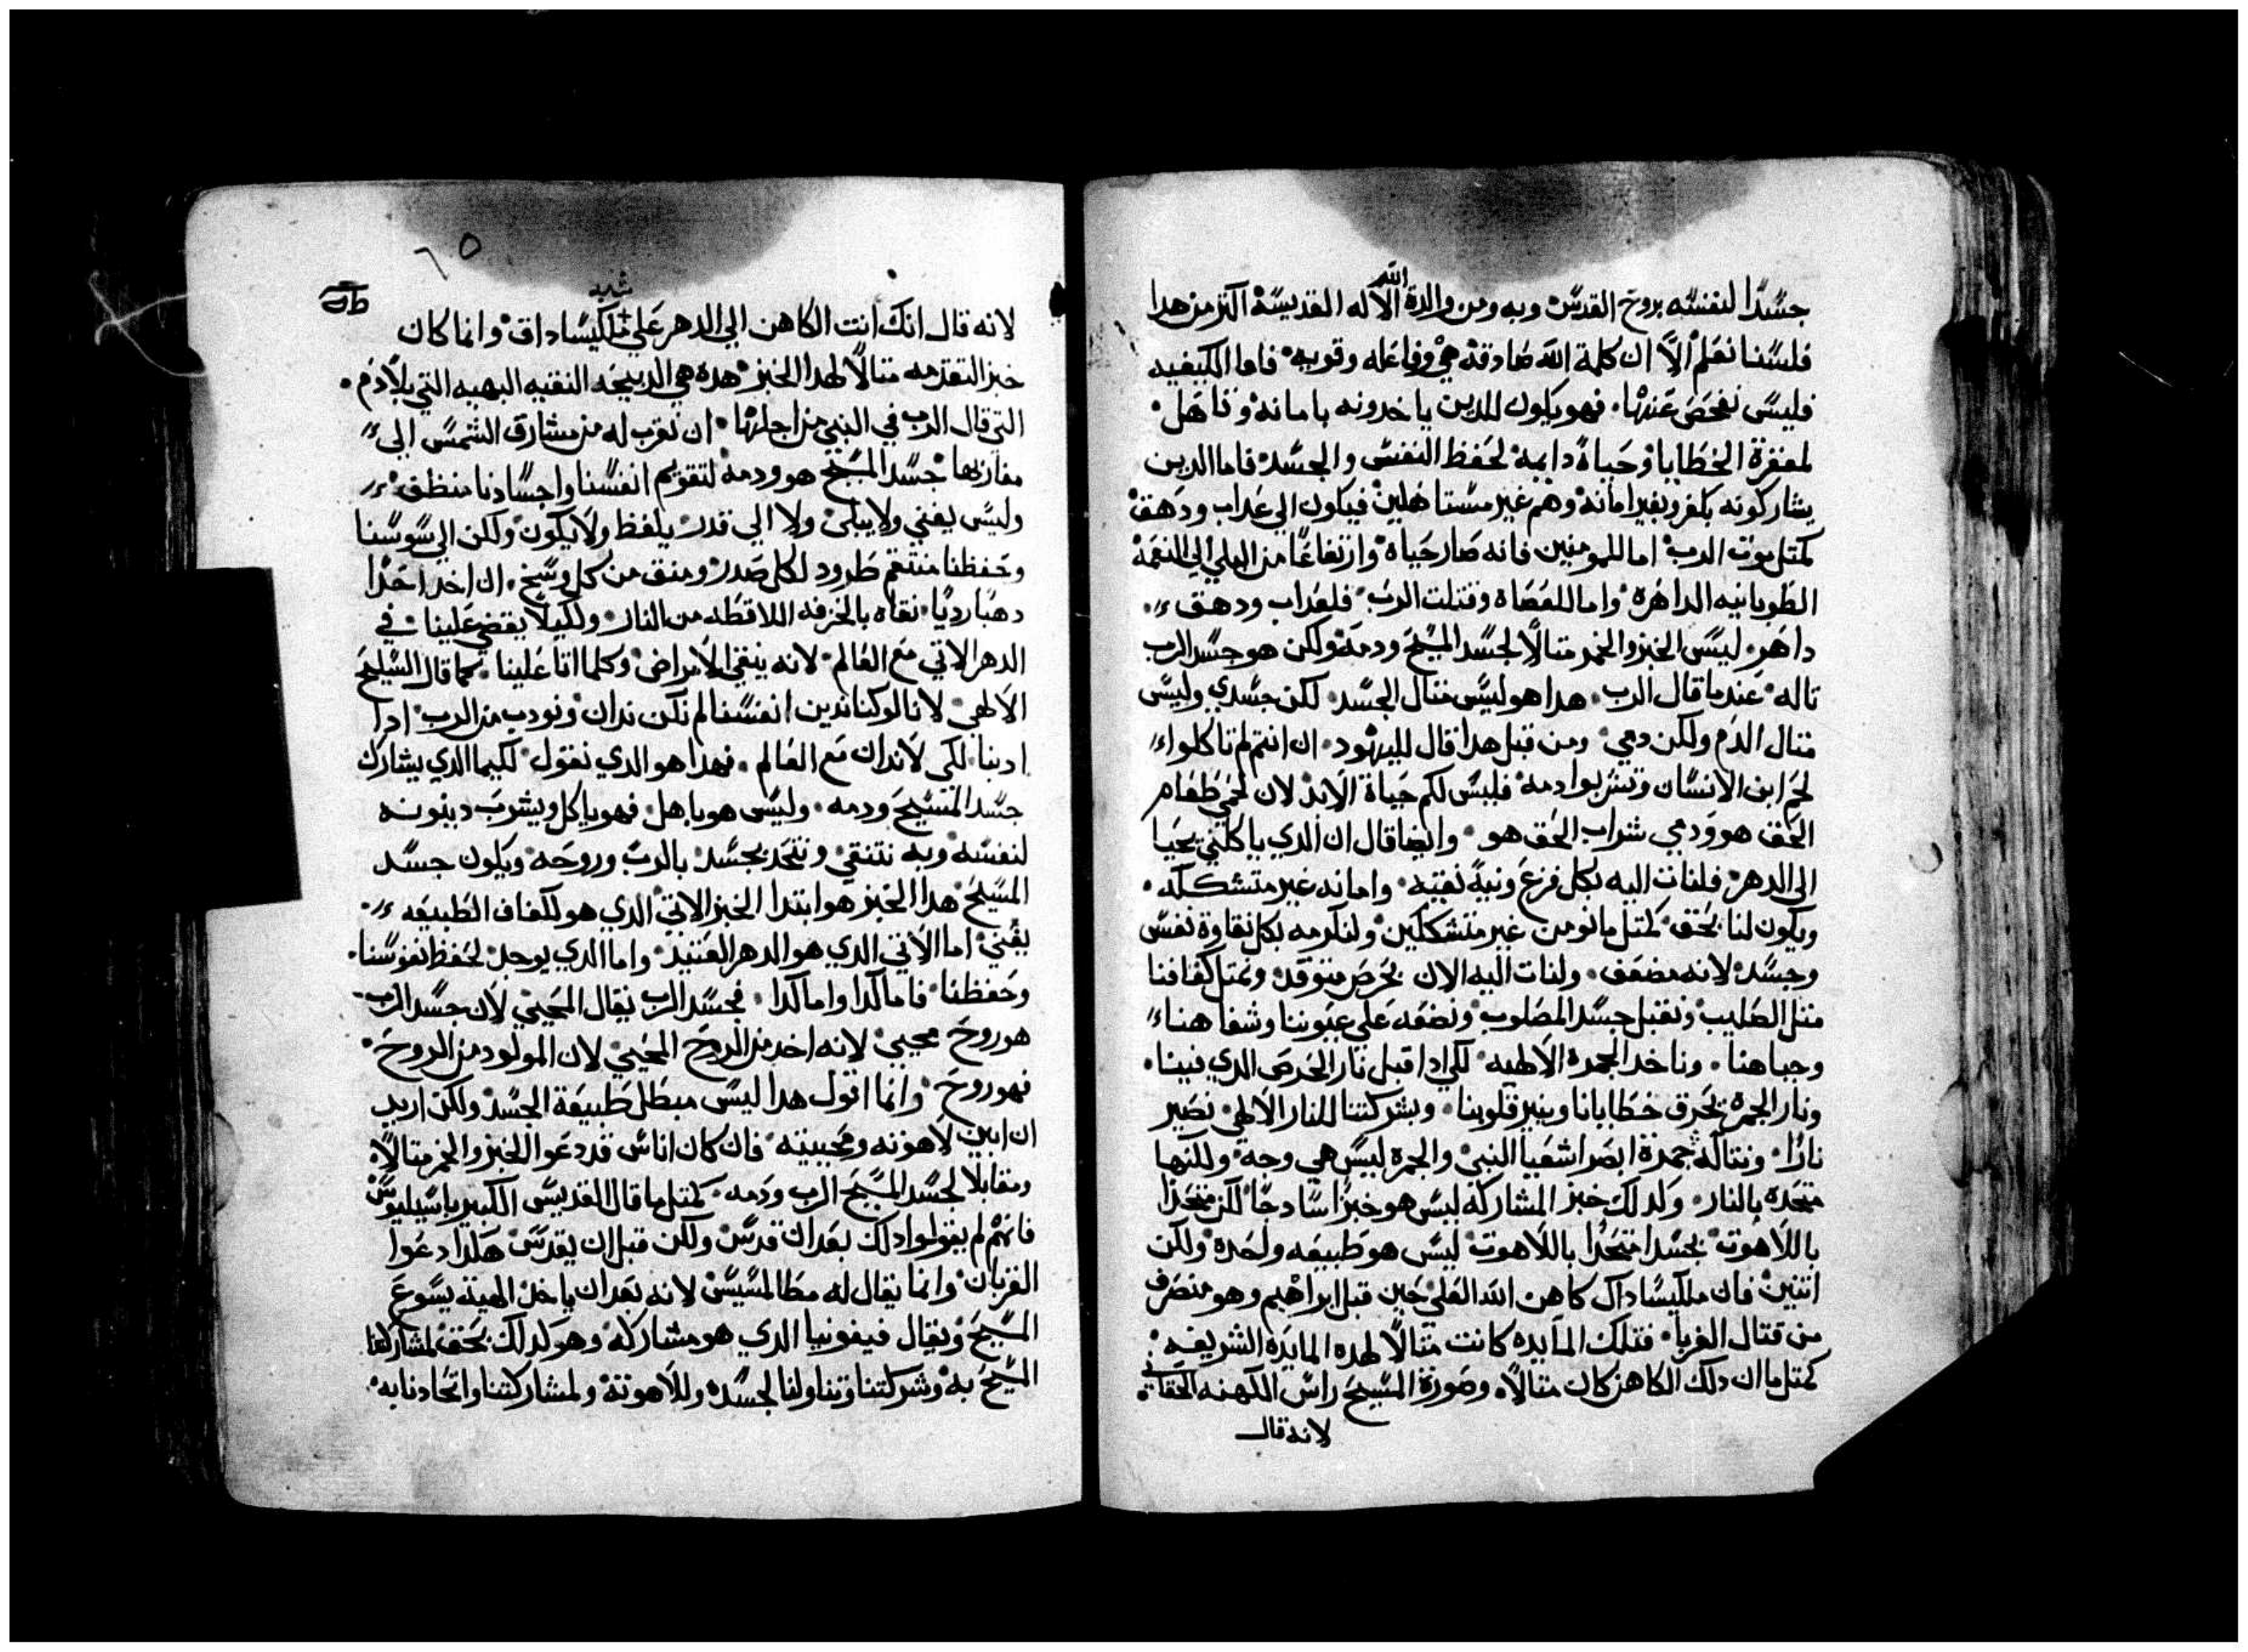 جسدًا لنفسه بروح القدس وبه ومن والدة الله الاله القديسة اكتر من هدا
فلسنا نعلم الا ان كلمة الله صادقة هي وفاعله وقويه فاما الكيفيه
فليس نفحص عنها فهو يكون للدين ياخدونه بامانة وتاهل
لمغفرة الخطايا وحياة دايمة لحفظ النفس والجسد فاما الدين
يشاركونه بكفر وبغير امانة وهم غير مستاهلين فيكون الي عداب ودهق
كمتل موت الرب اما للمومنين فانه صار حياة وارتفاعًا من البلي الي النعمة
الطوبانيه الداهرة واما للعصاة وقتلت الرب فلعداب ودهق
داهر ليس الخبز والخمر متالًا لجسد المسيح ودمه ولكن هو جسد الرب
تاله عندما قال الرب هدا هو ليس متال الجسد لكن جسدي وليس
متال الدم ولكن دمي ومن قبل هدا قال لليهود ان انتم لم تاكلوا
لحم ابن الانسان وتشربوا دمه فليس لكم حياة الابد لان لحمي طعام
الحق هو ودمي شراب الحق هو وايضا قال ان الدي ياكلني يحيا
الي الدهر فلنات اليه بكل فزع ونية نقيه وامانه غير متشككه
ويكون لنا بحق كمتل ما نومن غير متشككين ولنكرمه بكل نقاوة نفس
وجسد لانه مضعف ولنات اليه الان بحرص متوقد ونمتل كفافنا
متل الصليب ونقبل جسد المصلوب ونضعه علي عيوننا وشفاهنا
وجباهنا وناخد الجمرة الالهيه لكي ادا قبل نار الحرص الدي فينا
ونار الجمرة تحرق خطايانا وينير قلوبنا وبشركتنا للنار الالهي نصير
نارًا ونتاله جمرة ابصر اشعيا النبي والجمرة ليس هي وحده ولكنها
متحده بالنار ولدلك خبز المشاركه ليس هو خبزًا سادجًا لكن متحدًا
باللاهوت بجسد متحدًا باللاهوت ليس هو طبيعه واحدة ولكن
اتنين فان ملكيساداك كاهن الله العلي حين قبل ابراهيم وهو منصرف
من قتال الغربا فتلك المايده كانت متالًا لهده المايده الشريفه
كمتل ما ان دلك الكاهن كان متالًا وصورة المسيح راس الكهنه الحقاني
لانه قال
٦٥
شبه
لانه قال انك انت الكاهن الي الدهر علي ملكيساداق وانما كان
خبز التقدمه متالًا لهدا الخبز هده هي الدبيحه النقيه البهيه التي بلا دم
التي قال الرب في النبي من اجلها ان تقرب له من مشارق الشمس الي
مغاربها جسد المسيح هو ودمه لتقويم انفسنا واجسادنا منظف
وليس يفني ولا يبلي ولا الي قدر يلفظ ولا يكون ولكن الي سوسنا
وحفظنا منتقم طرود لكل صدر ومنق من كل وسخ ان اخد احدًا
دهبا رديًا نقاه بالخزفه اللاقطه من النار ولكيلا يقضي علينا في
الدهر الاتي مع العالم لانه ينقي الامراض وكلما اتا علينا كما قال السليح
الالهي لانا لو كنا ندين انفسنا لم نكن ندان ونودب من الرب ادا
ادبنا لكي لا ندان مع العالم فهدا هو الدي نقول لكيما الدي يشارك
جسد المسيح ودمه وليس هو باهل فهو ياكل ويشرب دينونه
لنفسه وبه نتنقي ونتحد بجسد بالرب وروحه ويكون جسد
المسيح هدا الخبز هو ابتدا الخبز الاتي الدي هو للكفاف الطبيعه
يقني اما الاتي الدي هو الدهر العتيد واما الدي يوحد لحفظ نفوسنا
وحفظنا فاما كدا واما كدا فجسد الرب يقال المحيي لان جسد الرب
هو روح محيي لانه اخد من الروح المحيي لان المولود من الروح
فهو روح وانما اقول هدا ليس مبطل طبيعة الجسد ولكن اريد
ان ابين لاهوته ومحييته فان كان اناس قد دعوا الخبز والخمر متالًا
ومقابلا لجسد المسيح الرب ودمه كمتل ما قال القديس الكبير باسيليوس
فانهم لم يقولوا دلك بعد ان قدس ولكن قبل ان يقدس هكدا دعوا
القربان وانما يقال له مطالمسيس لانه بعد ان ياخد الهية يسوع
المسيح ويقال فيفونيا الدي هو مشاركه وهو كدلك بحق لمشاركتنا
المسيح به وشركتنا وتناولنا لجسده وللاهوته ولمشاركتنا واتحادنا به